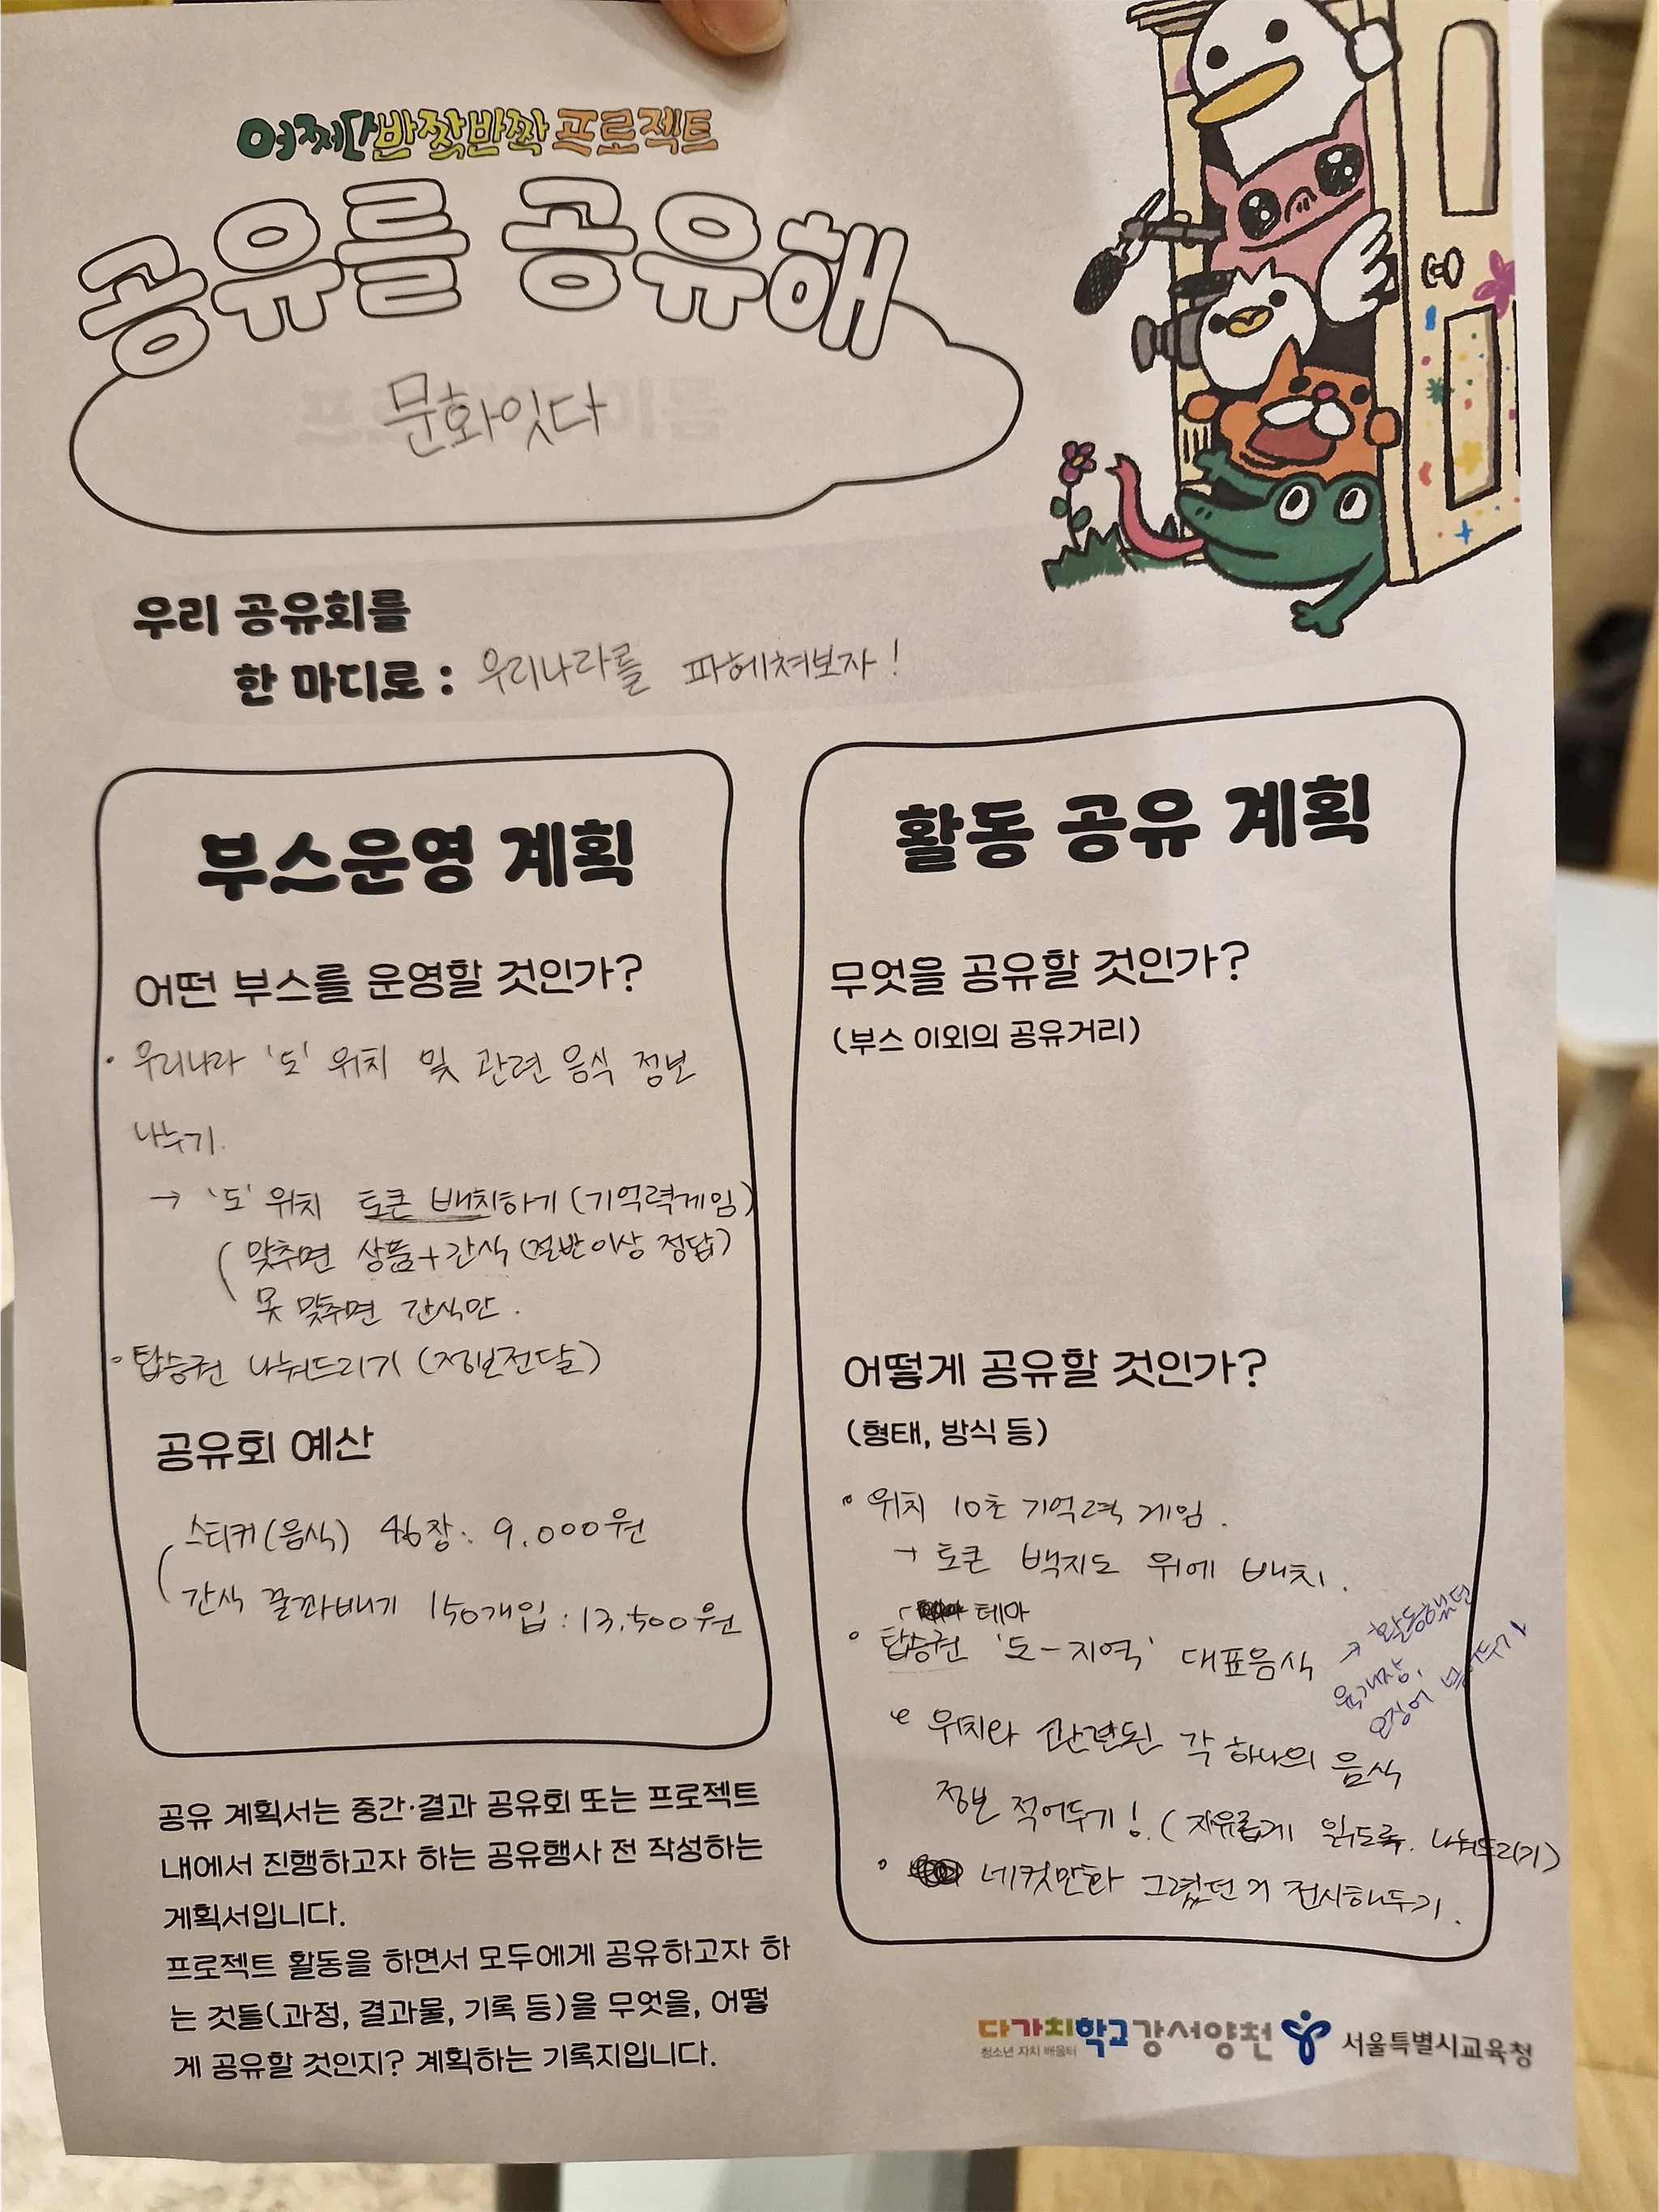 어쩌다반짝반짝 프로젝트
공유를 공유해
문화잇다
우리 공유회를
한 마디로 : 우리나라를 파헤쳐보자!
부스운영 계획
어떤 부스를 운영할 것인가?
· 우리나라 '도' 위치 및 관련 음식 정보
나누기.
→ '도' 위치 토큰 배치하기 (기억력게임)
( 맞추면 상품+간식 (절반이상 정답)
못 맞추면 간식만.
· 탑승권 나눠드리기 (정보전달)
공유회 예산
스티커(음식) 46장 : 9,000원
간식 꿀꽈배기 150개입 : 13,500원
공유 계획서는 중간·결과 공유회 또는 프로젝트
내에서 진행하고자 하는 공유행사 전 작성하는
계획서입니다.
프로젝트 활동을 하면서 모두에게 공유하고자 하
는 것들(과정, 결과물, 기록 등)을 무엇을, 어떻
게 공유할 것인지? 계획하는 기록지입니다.
활동 공유 계획
무엇을 공유할 것인가?
(부스 이외의 공유거리)
어떻게 공유할 것인가?
(형태, 방식 등)
· 위치 10초 기억력 게임.
→ 토큰 백지도 위에 배치.
테마
· 탑승권 '도-지역' 대표음식
→ 활동했던
육개장,
오징어 넣어두기
위치와 관련된 각 하나의 음식
정보 적어두기! (자유롭게 읽도록. 나눠드리기)
· 네컷만화 그렸던 거 전시해두기.
다가치학교강서양천
청소년 자치 배움터
서울특별시교육청